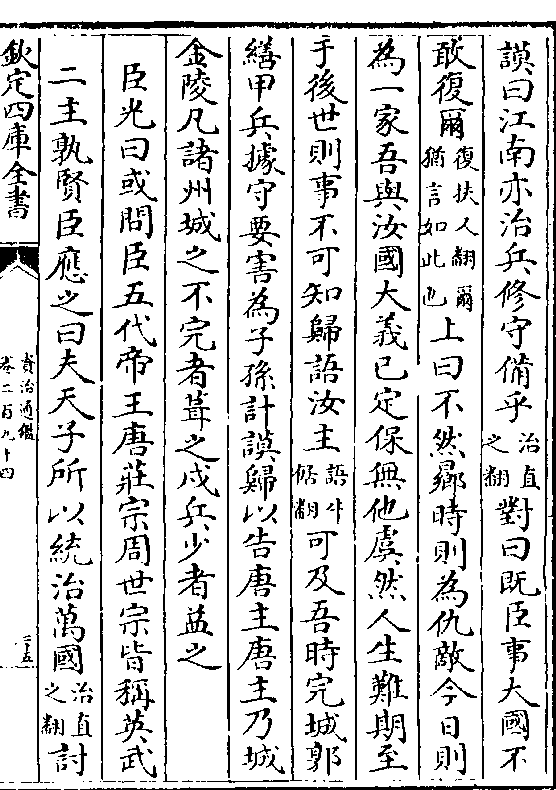 謨曰江南亦治兵修守備乎治直之翻對曰既臣事大國不
敢復爾復扶又翻爾猶言如此也上曰不然曏時則為仇敵今日則
為一家吾與汝國大義已定保無他虞然人生難期至
于後世則事不可知歸語汝主語牛倨翻可及吾時完城郭
繕甲兵據守要害為子孫計謨歸以告唐主唐主乃城
金陵凡諸州城之不完者葺之戍兵少者益之
臣光曰或問臣五代帝王唐莊宗周世宗皆稱英武
二主孰賢臣應之曰夫天子所以統治萬國治直之翻討
欽定四庫全書
資治通鑑
卷二百九十四
三十五